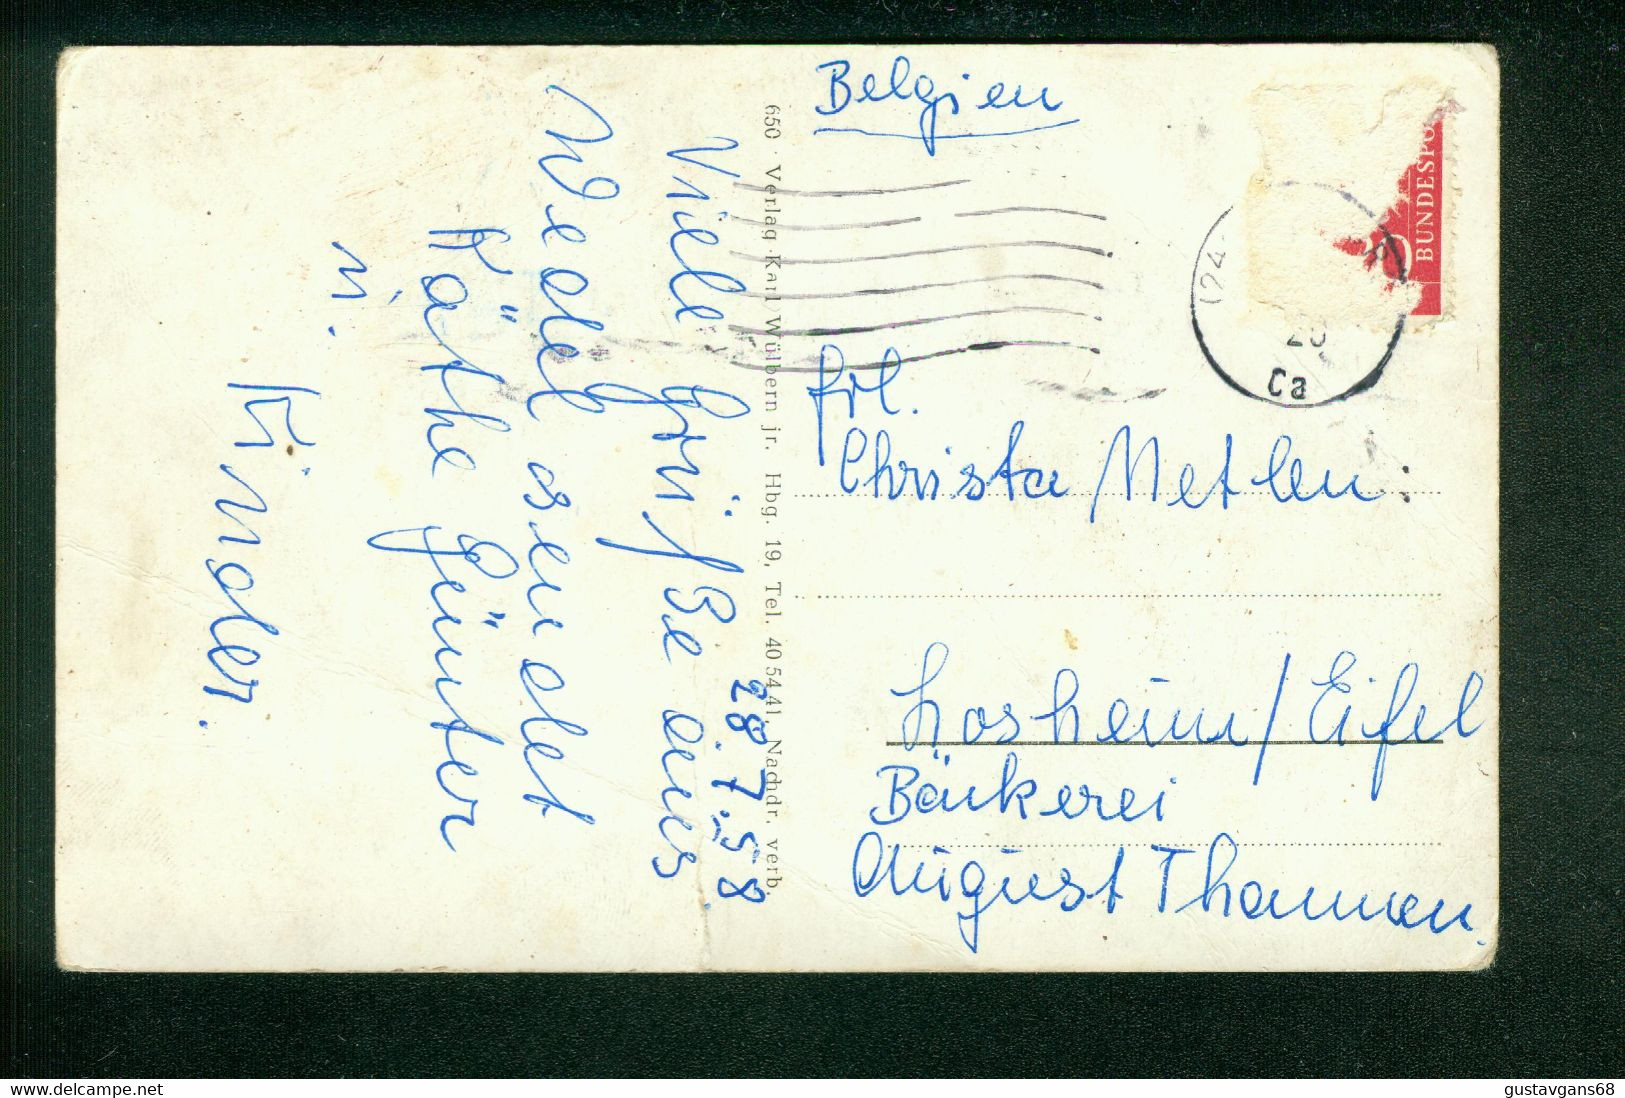 Belgien
BUNDESPO
(24
28
Ca
Frl.
Christa Metlen
Losheim/Eifel
Bäckerei
August Thannen
650 · Verlag Karl Wülbern jr. Hbg. 19, Tel. 40 54 41, Nachdr. verb.
28.7.58
Viele Grüße aus
Wedel sendet
Käthe Günter
u.
Kinder.
delcampe.net
gustavgans68